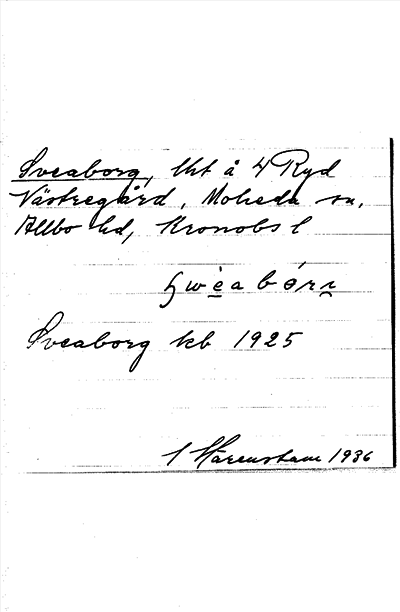 Sveaborg, lht å 4 Ryd
Västregård, Moheda sn,
Allbo hd, Kronobs l
Sveaborg kb 1925
1936